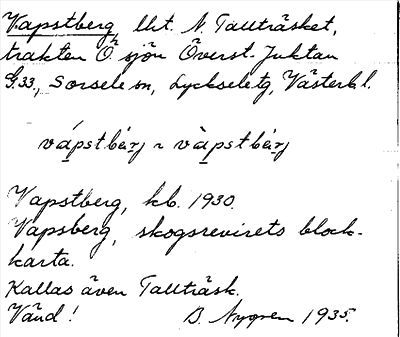 Vapstberg, lht. N. Tallträsket,
trakten Ö. sjön Överst. Juktan
G.33, Sorsele sn, Lycksele tg, Västerb. l.
vápstbærj ~ vàpstbærj
Vapstberg, kb. 1930.
Vapsberg, skogsrevirets block-
karta.
Kallas även Tallträsk.
Vänd! B. Nygren 1935.